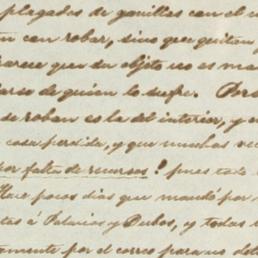 plagados de gavillas con el
can robar, sino que quitan
parece que su objeto no es
de quien lo sufre. Por
se roban es la del interior, y
cosa perdida, y que muchas
por falta de recursos! pues todo
Hace pocos dias que mandé por
á Palacios y Dubos, y todas
por el correo para no